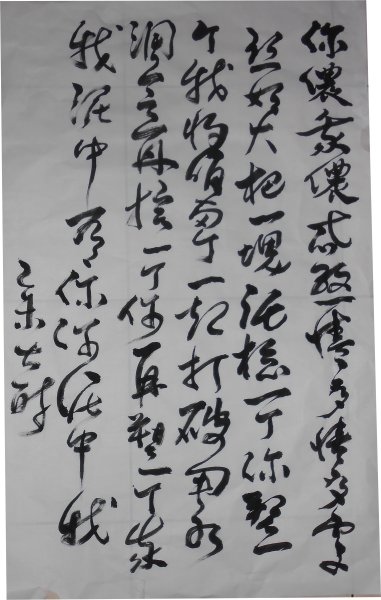 你儂我儂忒煞情多情多處
熱如火把一塊泥捻一个你塑一
个我將咱两个一起打破用水
調和再捻一个你再塑一个我
我泥中有你你泥中我
乙未